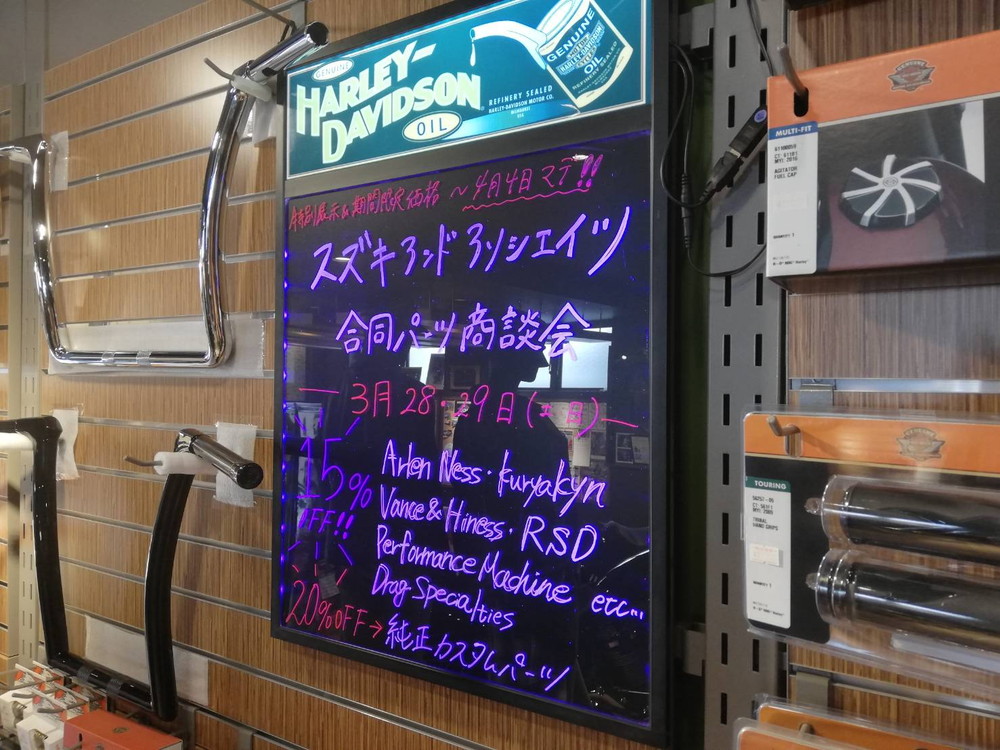 GENUINE
HARLEY-
DAVIDSON
OIL
REFINERY SEALED
HARLEY-DAVIDSON MOTOR CO.
GENUINE
OIL
REFINERY SEALED
特別展示&期間限定価格 ～4月4日マデ!!
スズキアンドアソシエイツ
合同パーツ商談会
3月28・29日(土日)
15%
OFF!!
Arlen Ness・Kuryakyn
Vance & Hiness・RSD
Performance Machine
Drag Specialties etc...
20%OFF→純正カスタムパーツ
MULTI-FIT
AGITATOR
FUEL CAP
TOURING
TRIBAL
HAND GRIPS